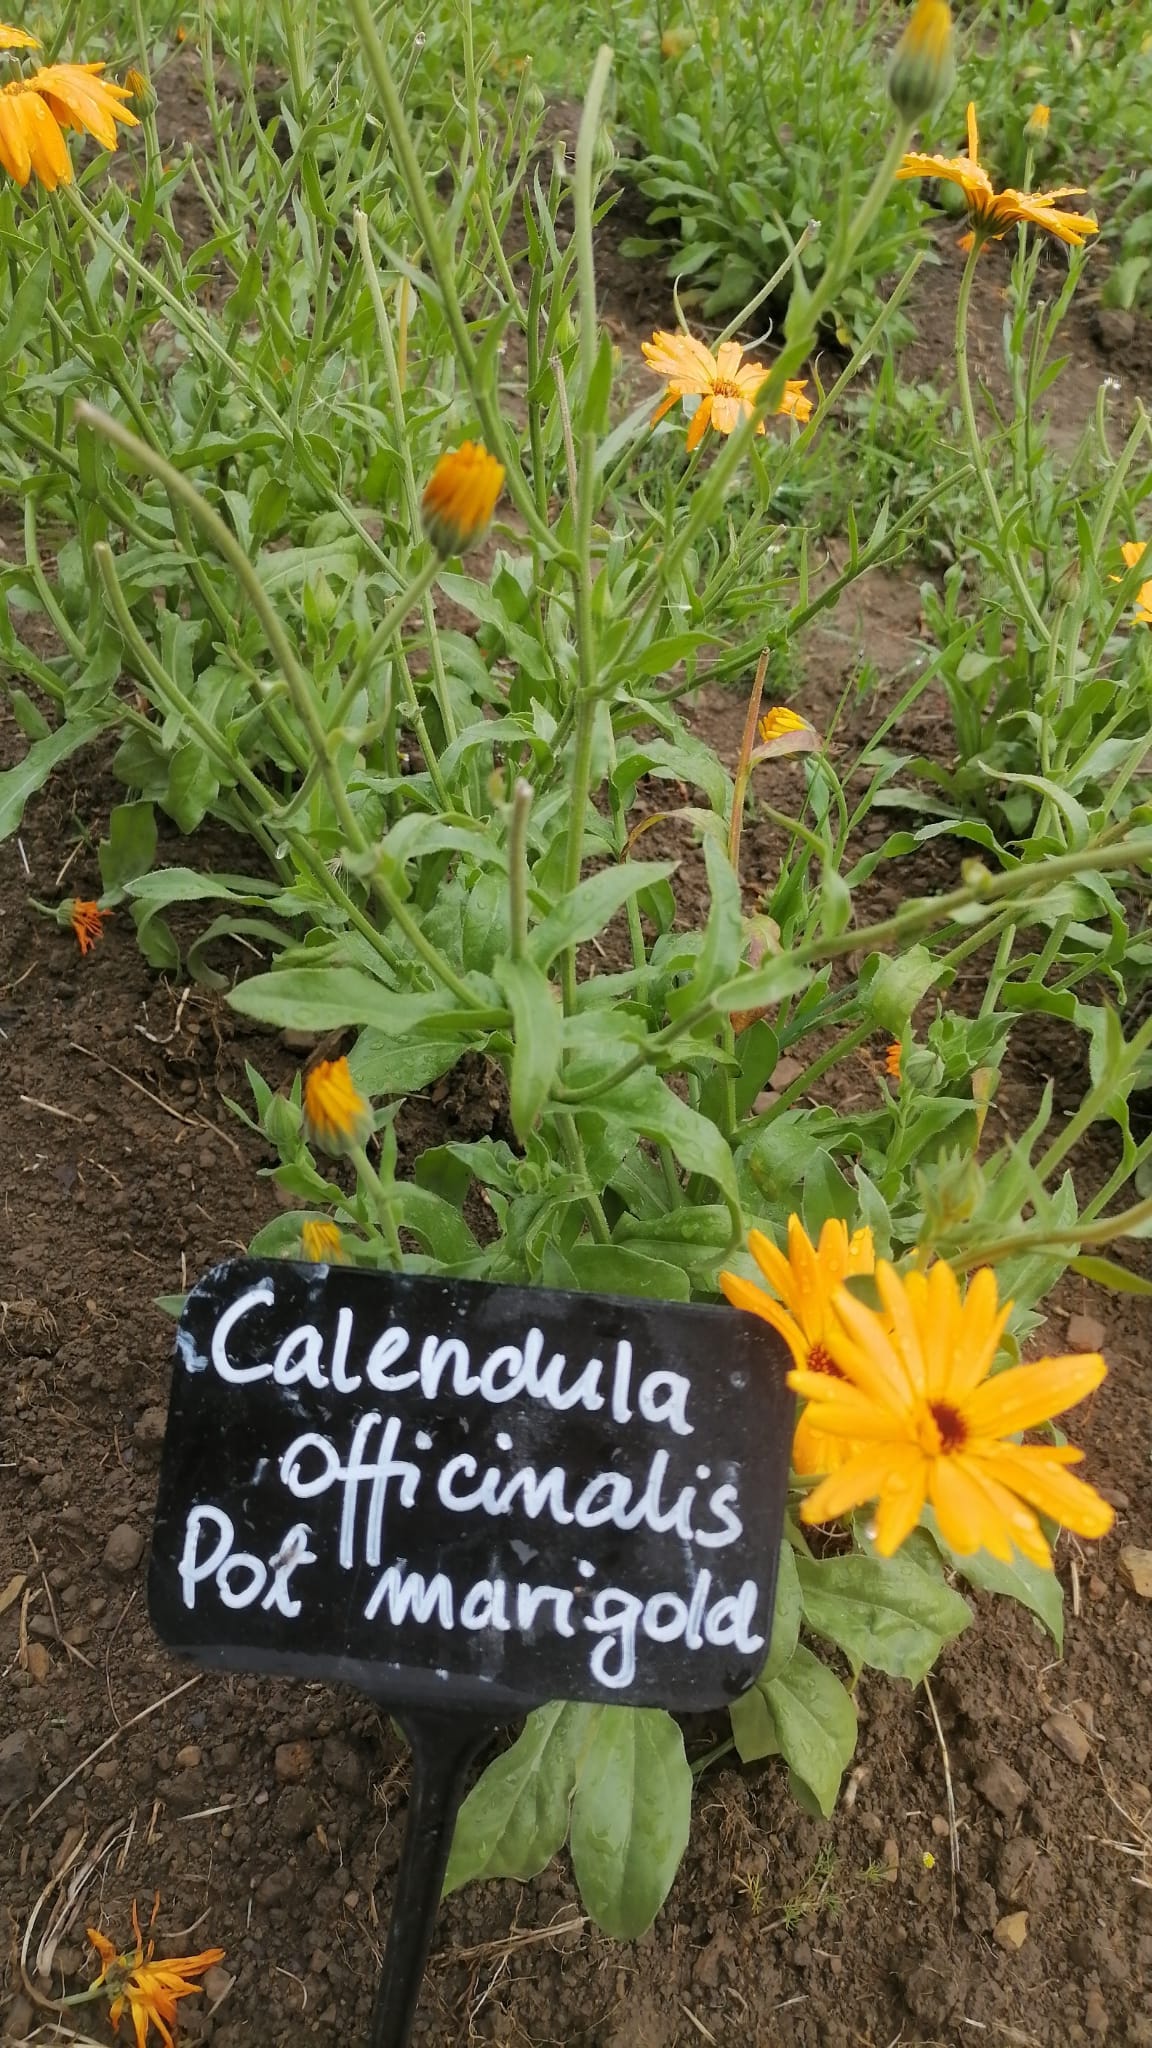 Calendula
officinalis
Pot marigold